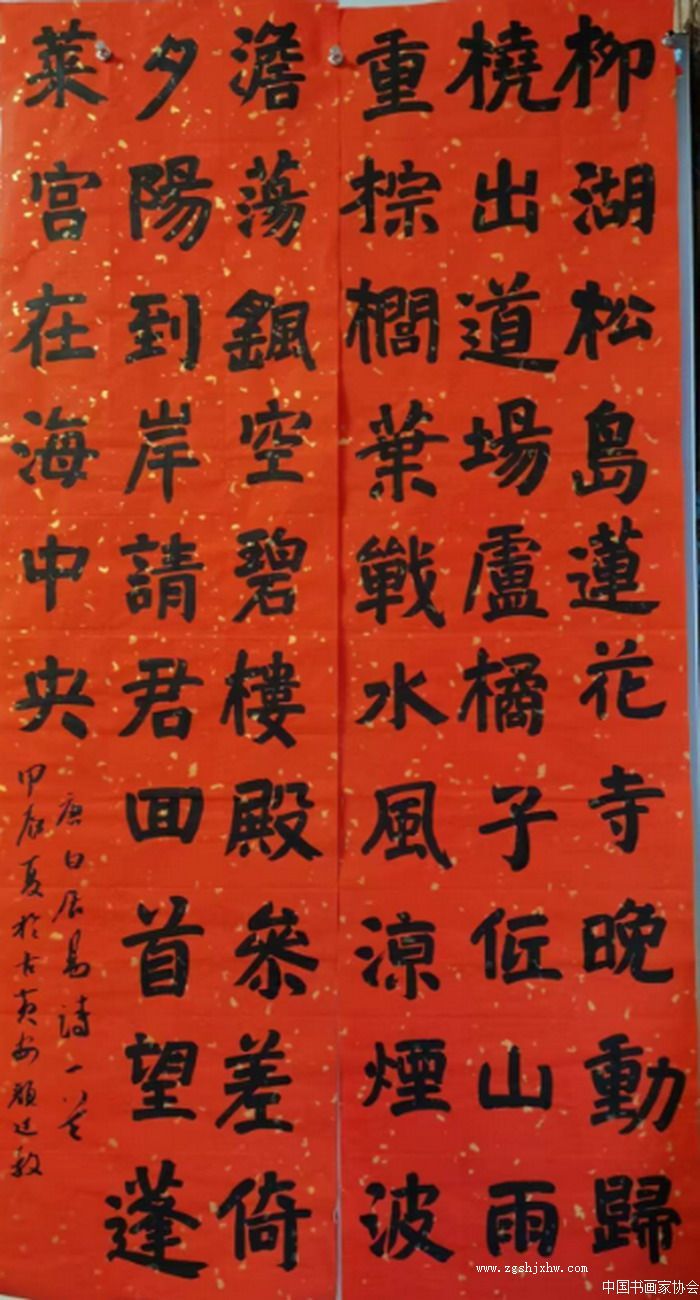 柳湖松島蓮花寺晚動歸
橈出道場盧橘子低山雨
重棕櫚葉戰水風涼煙波
澹蕩颻空碧樓殿參差倚
夕陽到岸請君回首望蓬
萊宮在海中央
唐白居易詩一首
甲辰夏於古黃安顏廷
www.zgshjxhw.com
中国书画家协会